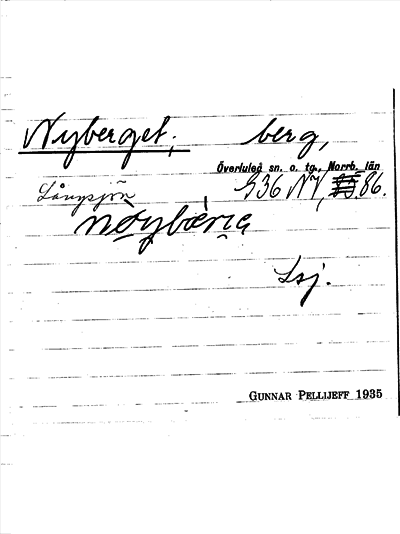 Nyberget, berg,
Överluleå sn. o. tg., Norrb. län
Långsjön G36 NV, 86.
nöybærıɕ
Lsj.
GUNNAR PELLIJEFF 1935